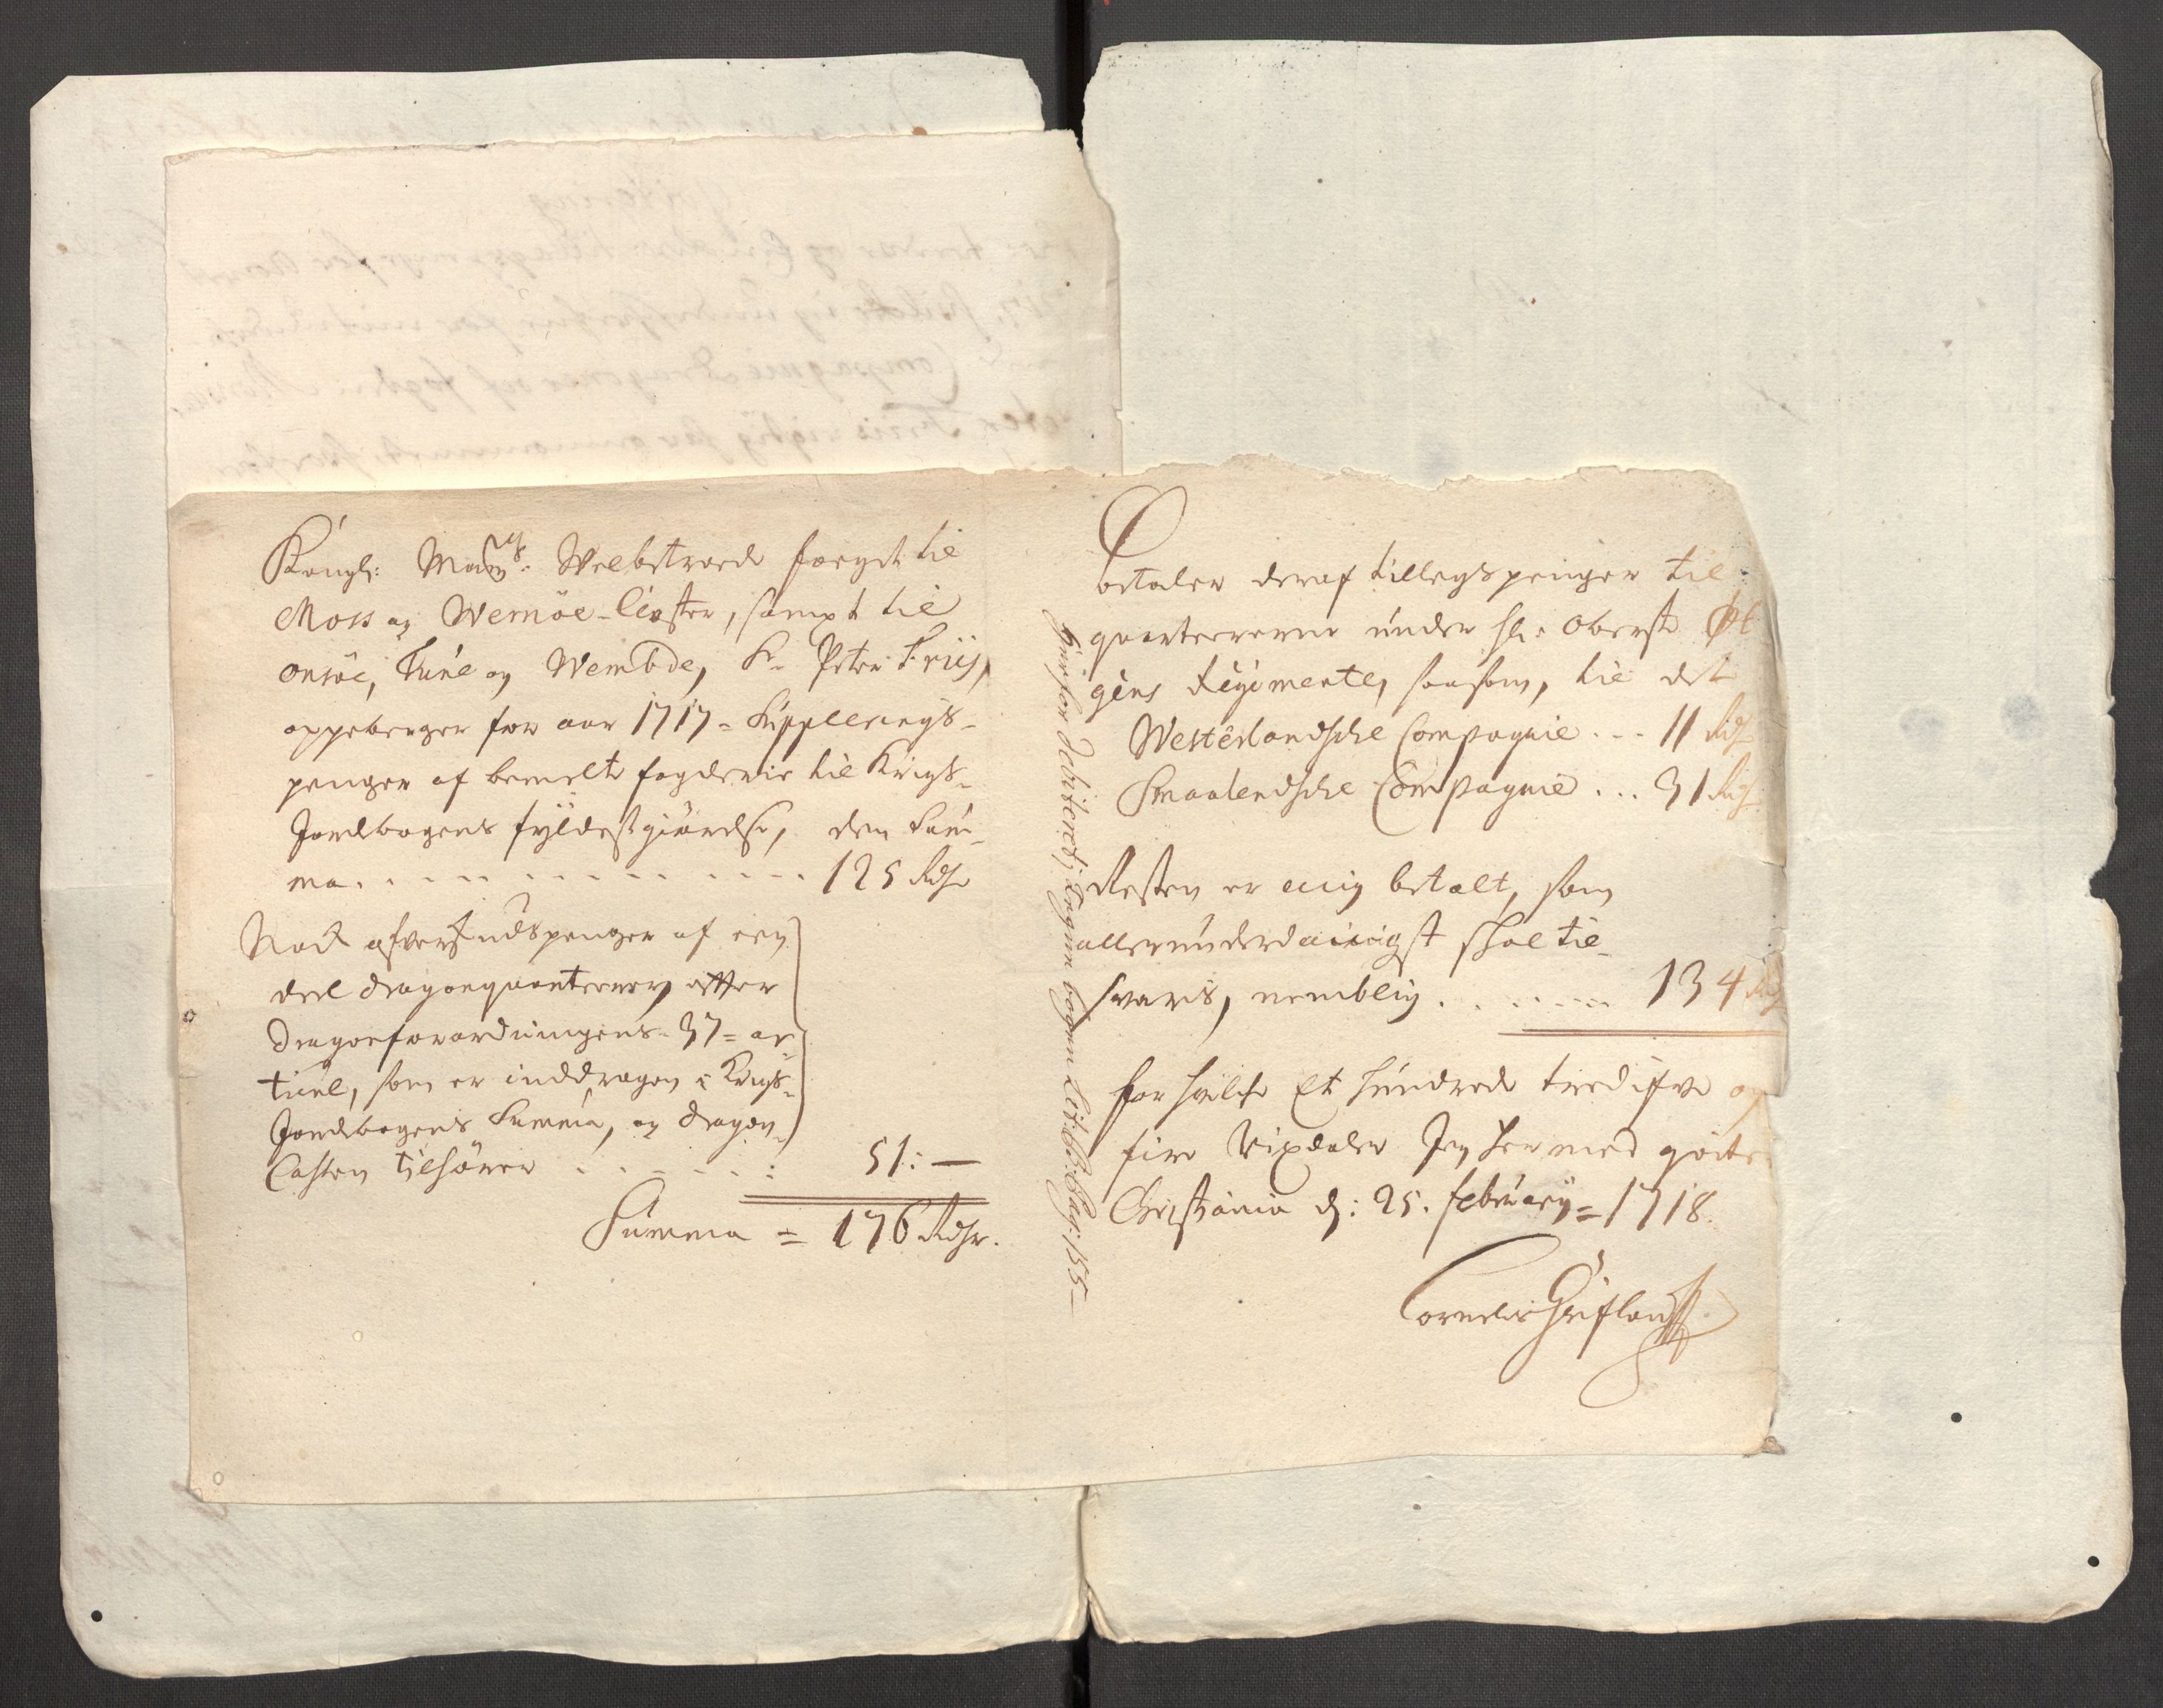 Kongl: May:ts Welbetroede foeget til
Moss og Wernöe-Closter, sampt til
Onsöe, Tune og Wembde, Sr. Peter Friis,
oppeberger for aar 1717 = Supplerings-
penger af bemelte fogderie til Krigs-
Jordbogens fyldestgiørelse, den Sum-
ma . . . . . . . . . . 125 Rdr
Nock afverschudspenger af een
deel dragonqvarteerer, efter
Dragonforordningens 37 = ar-
ticul, som er inddragen i Krigs-
Jordbogens Summa, og dragon-
Casten tilhører . . . . . : 51: —
Summa = 176 Rdr.
betaler deraf tillegspenger til
qvarteererne under hr: Oberst
gens Regimente, saasom, til det
Westerlandsche Compagnie . . . 11 Rdr
Smaalendsche Compagnie . . . 31 Rdr
Resten er mig betalt, som
allerunderdanigst skal til-
svaris, nemblig . . . . . . 134 Rdr
for hvilche Et hundrede tredifve og
fire Rixdaler Jeg hermed qvite
Christiania d: 25. February = 1718.
Hvorfor Debiteret, Legnubogen Lit: B: Pag: 155 —